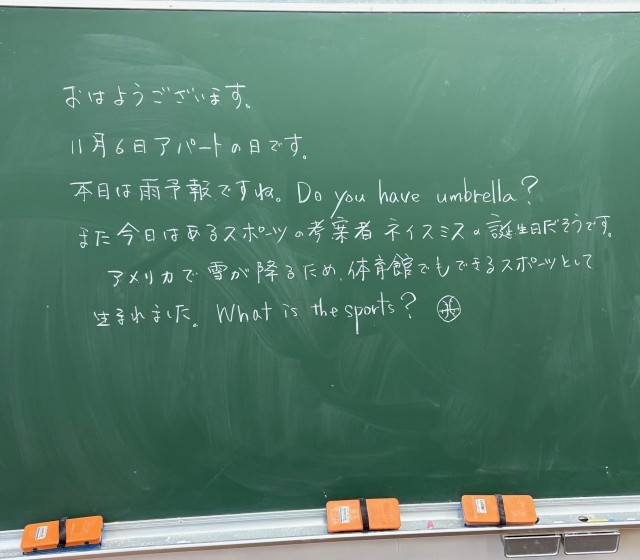 おはようございます。
11月6日アパートの日です。
本日は雨予報ですね。Do you have umbrella?
また今日はあるスポーツの考案者 ネイスミスの誕生日だそうです。
アメリカで雪が降るため、体育館でもできるスポーツとして
生まれました。What is the sports?